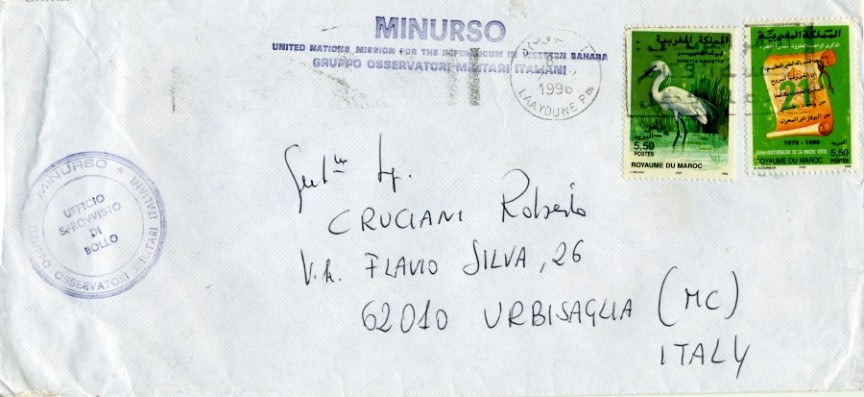 MINURSO
UNITED NATIONS MISSION FOR THE REFERENDUM IN WESTERN SAHARA
GRUPPO OSSERVATORI MILITARI ITALIANI
1996
LAAYOUNE Pal
المملكة المغربية
EGRETTA GARZETTA
5.50
POSTES
ROYAUME DU MAROC
المملكة المغربية
21
1975 - 1996
ANNIVERSAIRE DE LA MARCHE VERTE
5.50
ROYAUME DU MAROC
MINURSO
UFFICIO
SPROVVISTO
DI
BOLLO
GRUPPO OSSERVATORI MILITARI ITALIANI
CRUCIANI Roberto
FLAVIO SILVA, 26
62010 URBISAGLIA (MC)
ITALY